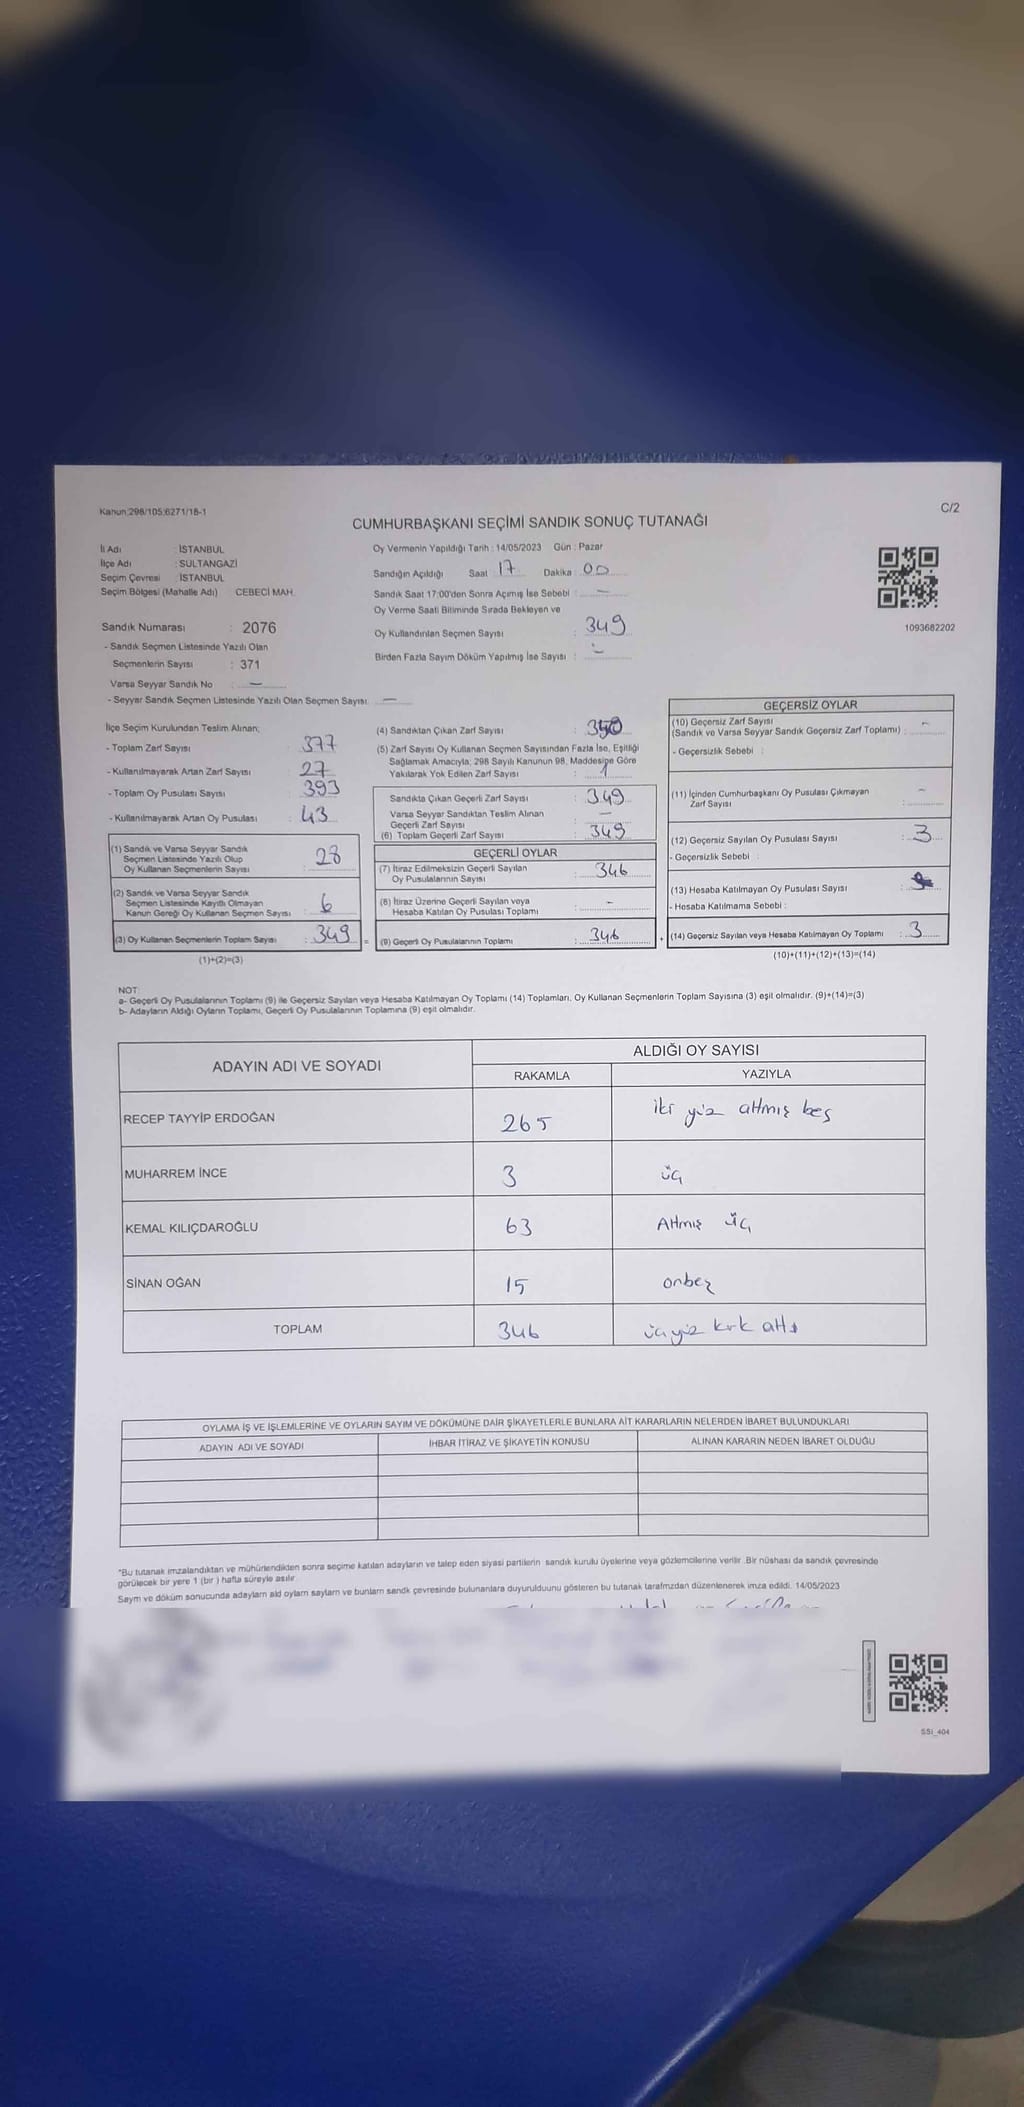 Kanun:298/105;6271/18-1
C/2
CUMHURBAŞKANI SEÇİMİ SANDIK SONUÇ TUTANAĞI
İl Adı : İSTANBUL
İlçe Adı : SULTANGAZİ
Seçim Çevresi : İSTANBUL
Seçim Bölgesi (Mahalle Adı) CEBECİ MAH.
Sandık Numarası : 2076
- Sandık Seçmen Listesinde Yazılı Olan
Seçmenlerin Sayısı : 371
Varsa Seyyar Sandık No : —
- Seyyar Sandık Seçmen Listesinde Yazılı Olan Seçmen Sayısı : —
Oy Vermenin Yapıldığı Tarih : 14/05/2023 Gün : Pazar
Sandığın Açıldığı Saat : 17 Dakika : 00
Sandık Saat 17:00'den Sonra Açımış İse Sebebi : —
Oy Verme Saati Bitiminde Sırada Bekleyen ve
Oy Kullandırılan Seçmen Sayısı : 349
Birden Fazla Sayım Döküm Yapılmış İse Sayısı : -
1093682202
İlçe Seçim Kurulundan Teslim Alınan;
- Toplam Zarf Sayısı : 377
- Kullanılmayarak Artan Zarf Sayısı : 27
- Toplam Oy Pusulası Sayısı : 393
- Kullanılmayarak Artan Oy Pusulası : 43
(1) Sandık ve Varsa Seyyar Sandık
Seçmen Listesinde Yazılı Olup
Oy Kullanan Seçmenlerin Sayısı : 28
(2) Sandık ve Varsa Seyyar Sandık
Seçmen Listesinde Kayıtlı Olmayan
Kanun Gereği Oy Kullanan Seçmen Sayısı : 6
(3) Oy Kullanan Seçmenlerin Toplam Sayısı : 349 =
(1)+(2)=(3)
(4) Sandıktan Çıkan Zarf Sayısı : 350
(5) Zarf Sayısı Oy Kullanan Seçmen Sayısından Fazla İse, Eşitliği
Sağlamak Amacıyla; 298 Sayılı Kanunun 98. Maddesine Göre
Yakılarak Yok Edilen Zarf Sayısı : 1
Sandıkta Çıkan Geçerli Zarf Sayısı : 349
Varsa Seyyar Sandıktan Teslim Alınan
Geçerli Zarf Sayısı : —
(6) Toplam Geçerli Zarf Sayısı : 349
GEÇERLİ OYLAR
(7) İtiraz Edilmeksizin Geçerli Sayılan
Oy Pusulalarının Sayısı : 346
(8) İtiraz Üzerine Geçerli Sayılan veya
Hesaba Katılan Oy Pusulası Toplamı : -
(9) Geçerli Oy Pusulalarının Toplamı : 346 +
GEÇERSİZ OYLAR
(10) Geçersiz Zarf Sayısı
(Sandık ve Varsa Seyyar Sandık Geçersiz Zarf Toplamı) : -
- Geçersizlik Sebebi :
(11) İçinden Cumhurbaşkanı Oy Pusulası Çıkmayan
Zarf Sayısı : -
(12) Geçersiz Sayılan Oy Pusulası Sayısı : 3
- Geçersizlik Sebebi :
(13) Hesaba Katılmayan Oy Pusulası Sayısı :
- Hesaba Katılmama Sebebi :
(14) Geçersiz Sayılan veya Hesaba Katılmayan Oy Toplamı : 3
(10)+(11)+(12)+(13)=(14)
NOT:
a- Geçerli Oy Pusulalarının Toplamı (9) ile Geçersiz Sayılan veya Hesaba Katılmayan Oy Toplamı (14) Toplamları, Oy Kullanan Seçmenlerin Toplam Sayısına (3) eşit olmalıdır. (9)+(14)=(3)
b- Adayların Aldığı Oyların Toplamı, Geçerli Oy Pusulalarının Toplamına (9) eşit olmalıdır.
ADAYIN ADI VE SOYADI
ALDIĞI OY SAYISI
RAKAMLA YAZIYLA
RECEP TAYYİP ERDOĞAN 265 iki yüz altmış beş
MUHARREM İNCE 3 üç
KEMAL KILIÇDAROĞLU 63 Altmış üç
SİNAN OĞAN 15 onbeş
TOPLAM 346 üçyüz kırk altı
OYLAMA İŞ VE İŞLEMLERİNE VE OYLARIN SAYIM VE DÖKÜMÜNE DAİR ŞİKAYETLERLE BUNLARA AİT KARARLARIN NELERDEN İBARET BULUNDUKLARI
ADAYIN ADI VE SOYADI İHBAR İTİRAZ VE ŞİKAYETİN KONUSU ALINAN KARARIN NEDEN İBARET OLDUĞU
*Bu tutanak imzalandıktan ve mühürlendikten sonra seçime katılan adayların ve talep eden siyasi partilerin sandık kurulu üyelerine veya gözlemcilerine verilir. Bir nüshası da sandık çevresinde
görülecek bir yere 1 (bir ) hafta süreyle asılır.
Saym ve döküm sonucunda adaylarn ald oylarn saylarn ve bunlarn sandk çevresinde bulunanlara duyurulduunu gösteren bu tutanak tarafmzdan düzenlenerek imza edildi. 14/05/2023
SSİ_404